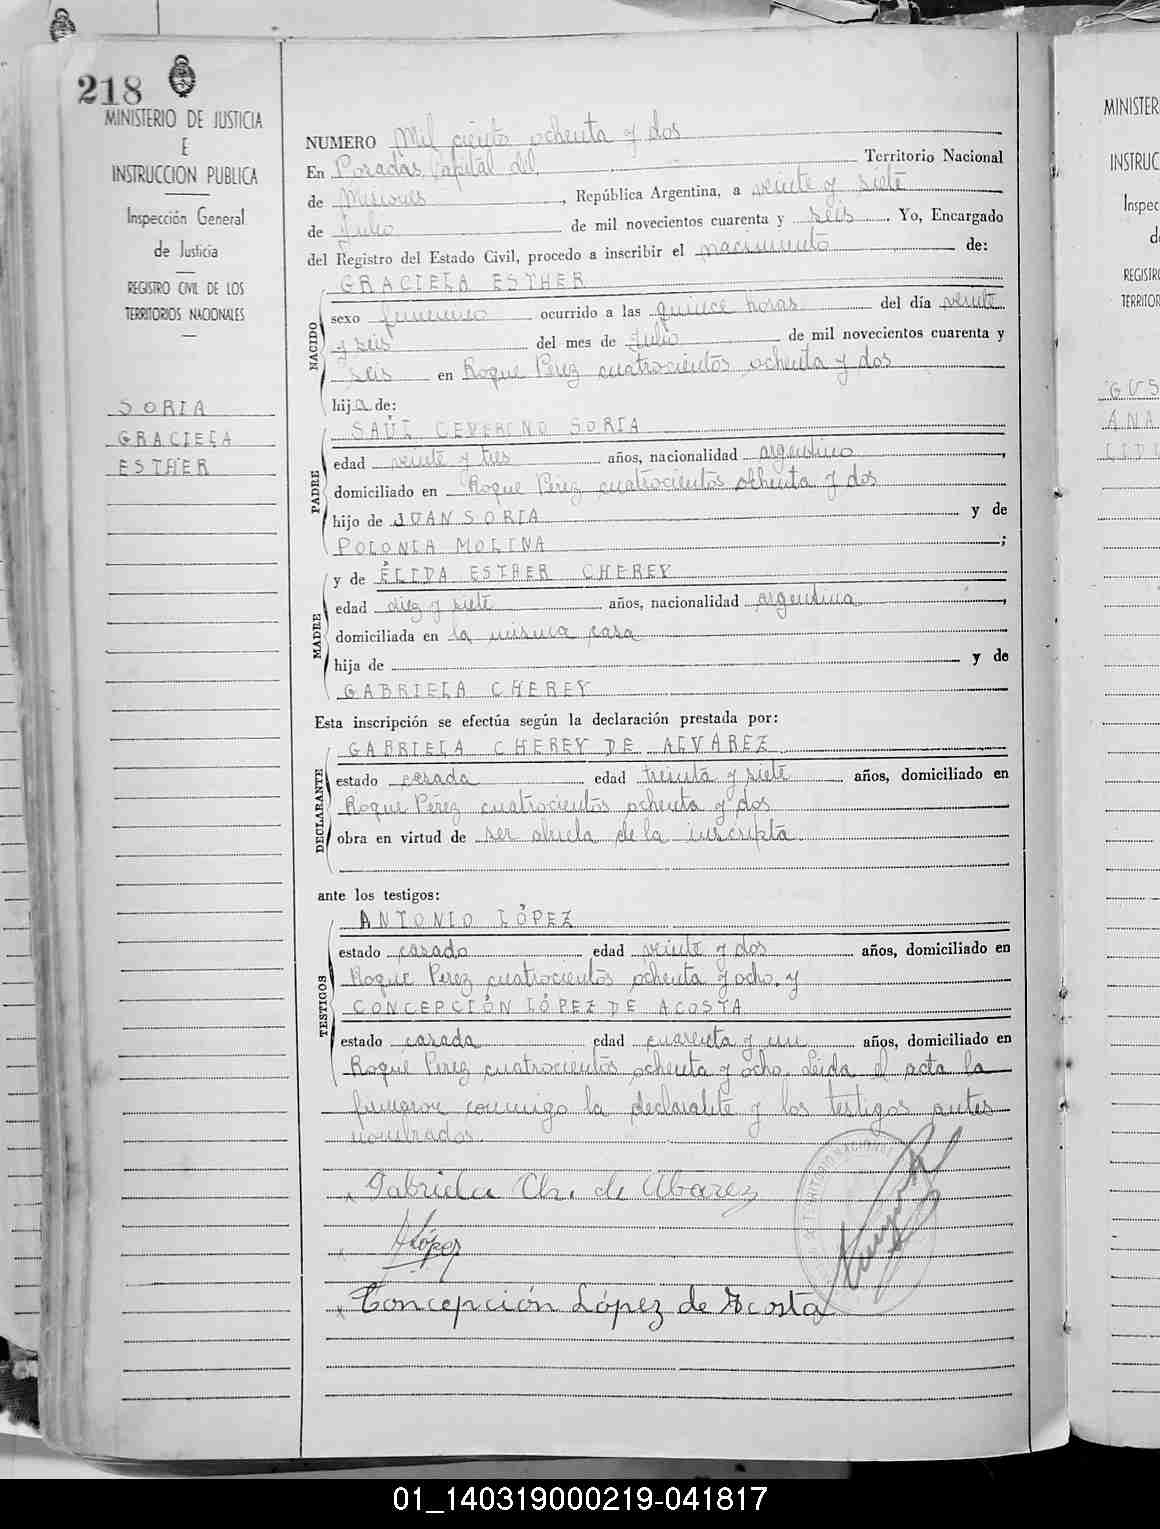 218
MINISTERIO DE JUSTICIA
E
INSTRUCCION PUBLICA
Inspección General
de Justicia
REGISTRO CIVIL DE LOS
TERRITORIOS NACIONALES
SORIA
GRACIELA
ESTHER
NUMERO Mil ciento ochenta y dos
En Posadas, Capital del Territorio Nacional
de Misiones, República Argentina, a veinte y siete
de Julio de mil novecientos cuarenta y seis. Yo, Encargado
del Registro del Estado Civil, procedo a inscribir el nacimiento de:
NACIDO
GRACIELA ESTHER
sexo femenino ocurrido a las quince horas del día veinte
y seis del mes de julio de mil novecientos cuarenta y
seis en Roque Pérez cuatrocientos ochenta y dos
hija de:
PADRE
SAÚL CEVERINO SORIA
edad veinte y tres años, nacionalidad argentino,
domiciliado en Roque Pérez cuatrocientos ochenta y dos
hijo de JUAN SORIA y de
POLONIA MOLINA;
MADRE
y de ÉLIDA ESTHER CHEREY
edad diez y siete años, nacionalidad argentina,
domiciliada en la misma casa
hija de y de
GABRIELA CHEREY
Esta inscripción se efectúa según la declaración prestada por:
DECLARANTE
GABRIELA CHEREY DE ALVAREZ
estado casada edad treinta y siete años, domiciliado en
Roque Pérez cuatrocientos ochenta y dos
obra en virtud de ser abuela de la inscripta.
ante los testigos:
TESTIGOS
ANTONIO LÓPEZ
estado casado edad veinte y dos años, domiciliado en
Roque Pérez cuatrocientos ochenta y ocho. y
CONCEPCIÓN LÓPEZ DE ACOSTA
estado casada edad cuarenta y un años, domiciliado en
Roque Pérez cuatrocientos ochenta y ocho. Leída el acta la
firmaron conmigo la declarante y los testigos antes
nombrados.
Gabriela Ch. de Alvarez
A López
Concepción López de Acosta
MINISTER
INSTRUC
Inspec
d
REGISTR
TERRITOR
GUS
ANA
LIDU
01_140319000219-041817